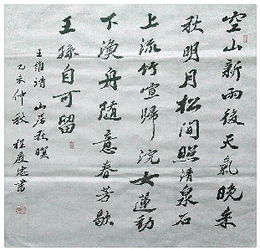 空山新雨後天氣晚來
秋明月松間照清泉石
上流竹喧歸浣女蓮動
下漁舟隨意春芳歇
王孫自可留
王維詩 山居秋暝
乙未仲秋 程
書